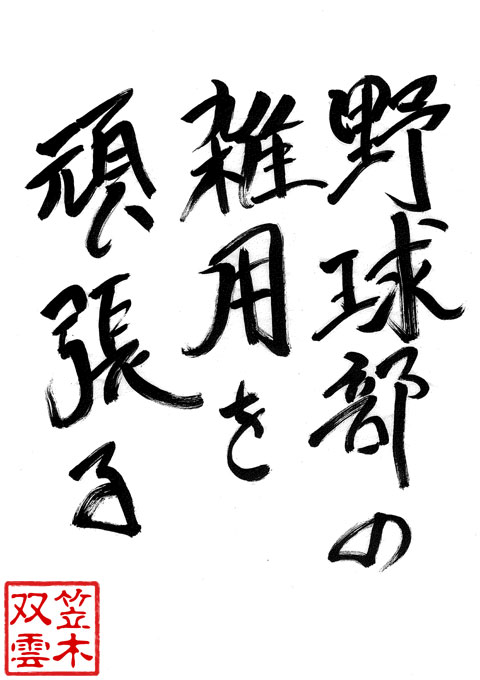 野球部の
雑用を
頑張る
笠木
双雲